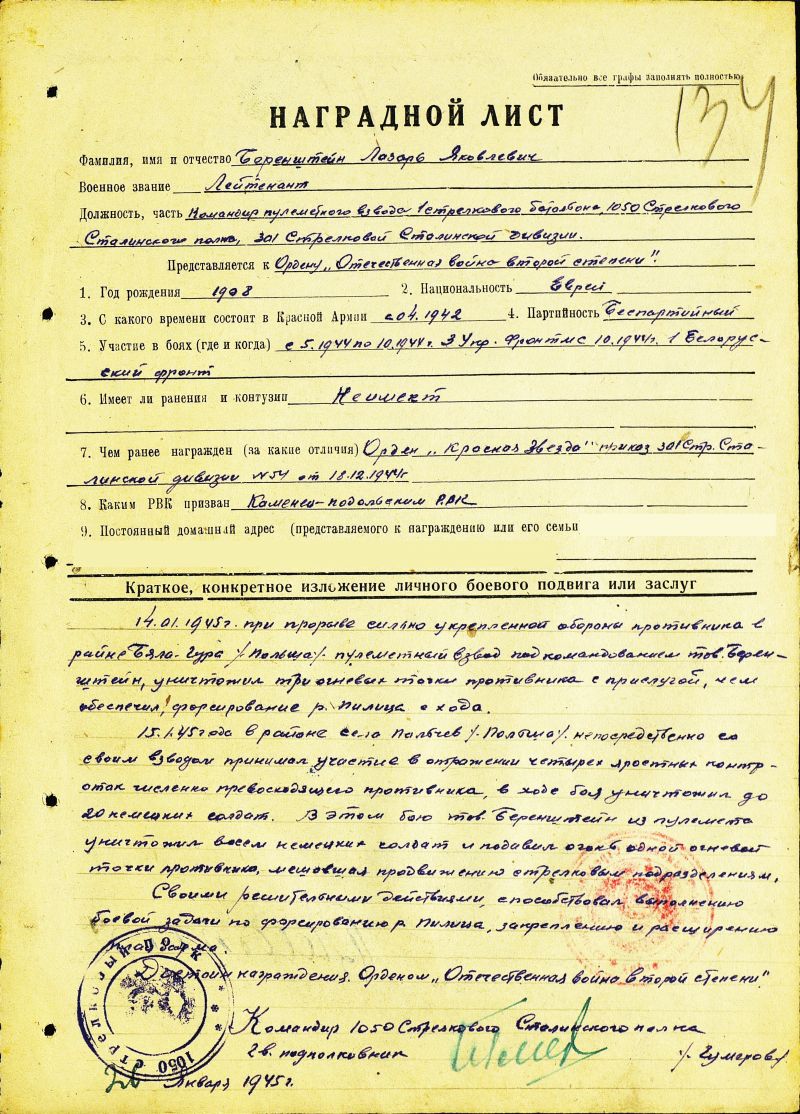 Обязательно все графы заполнять полностью
134
НАГРАДНОЙ ЛИСТ
Фамилия, имя и отчество Беренштейн Лазарь Яковлевич
Военное звание Лейтенант
Должность, часть Командир пулеметного взвода 1 стрелкового батальона, 1050 Стрелкового
Сталинского полка, 301 Стрелковой Сталинской дивизии.
Представляется к Ордену „Отечественная война второй степени".
1. Год рождения 1908 2. Национальность Еврей
3. С какого времени состоит в Красной Армии с 04.1942 4. Партийность Беспартийный
5. Участие в боях (где и когда) с 5.1944 по 10.1944г. 3 Укр. Фронт и с 10.1944г. 1 Белорус-
ский фронт
6. Имеет ли ранения и контузии Не имеет
7. Чем ранее награжден (за какие отличия) Орден „Красная Звезда" приказ 301 Стр. Ста-
линской дивизии №54 от 18.12.1944г
8. Каким РВК призван Каменец-подольским РВК
9. Постоянный домашний адрес (представляемого к награждению или его семьи
Краткое, конкретное изложение личного боевого подвига или заслуг
14.01.1945г. при прорыве сильно укрепленной обороны противника в
райне Бяла-Гура /-Польша/- пулеметный взвод под командованием тов. Берен-
штейн, уничтожил три огневых точки противника с прислугой, чем
обеспечил, форсирование р. Пилица с хода.
15.1.45 года в районе села Палчев /-Польша/- непосредственно со
своим взводом принимал участие в отражении четырех яростных контр-
атак численно превосходящего противника, в ходе боя уничтожил до
20 немецких солдат. В этом бою тов. Беренштейн из пулемета
уничтожил восем немецких солдат и подавил огонь одной огневой
точки противника, мешавшая продвижению стрелковым подразделениям.
Своими решительными действиями, способствовал выполнению
боевой задачи по форсированию р. Пилица, закреплению и расширению
плацдарма.
Достоин награждения Орденом „Отечественная война второй степени".
Командир 1050 Стрелкового Сталинского полка
Гв. подполковник /-Гумеров/
Января 1945г.
1050 СТРЕЛКОВЫЙ ПОЛК